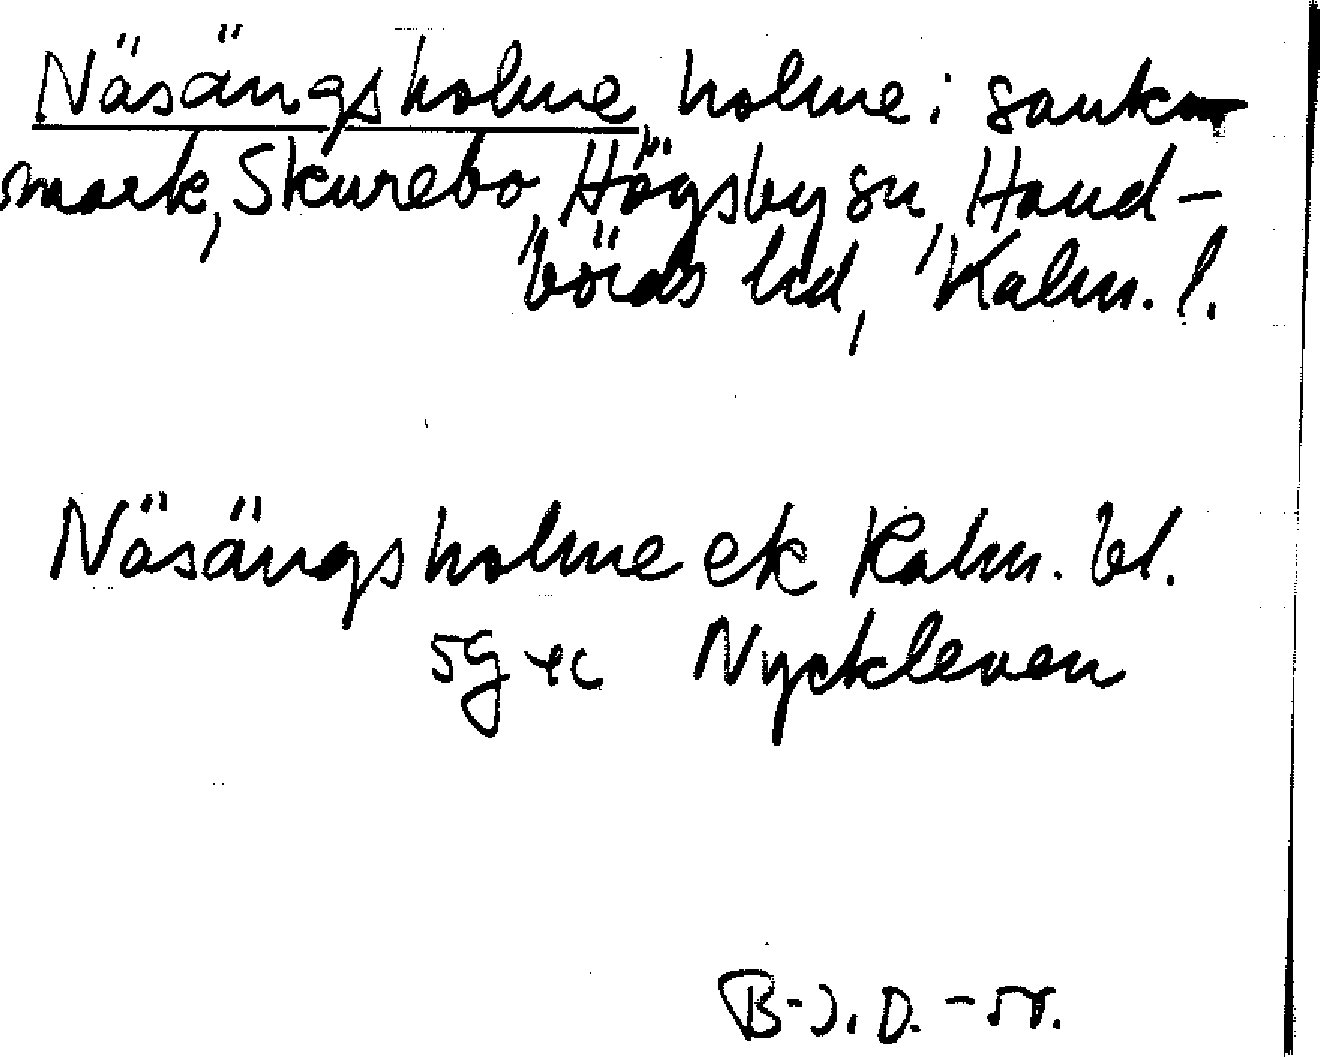 Näsängsholme, holme i sank-
mark, Skurebo, Högsby sn, Hand-
börds hd, Kalm. l.
Näsängsholme ek Kalm. bl.
5g Nyckleven
B-J. D. -